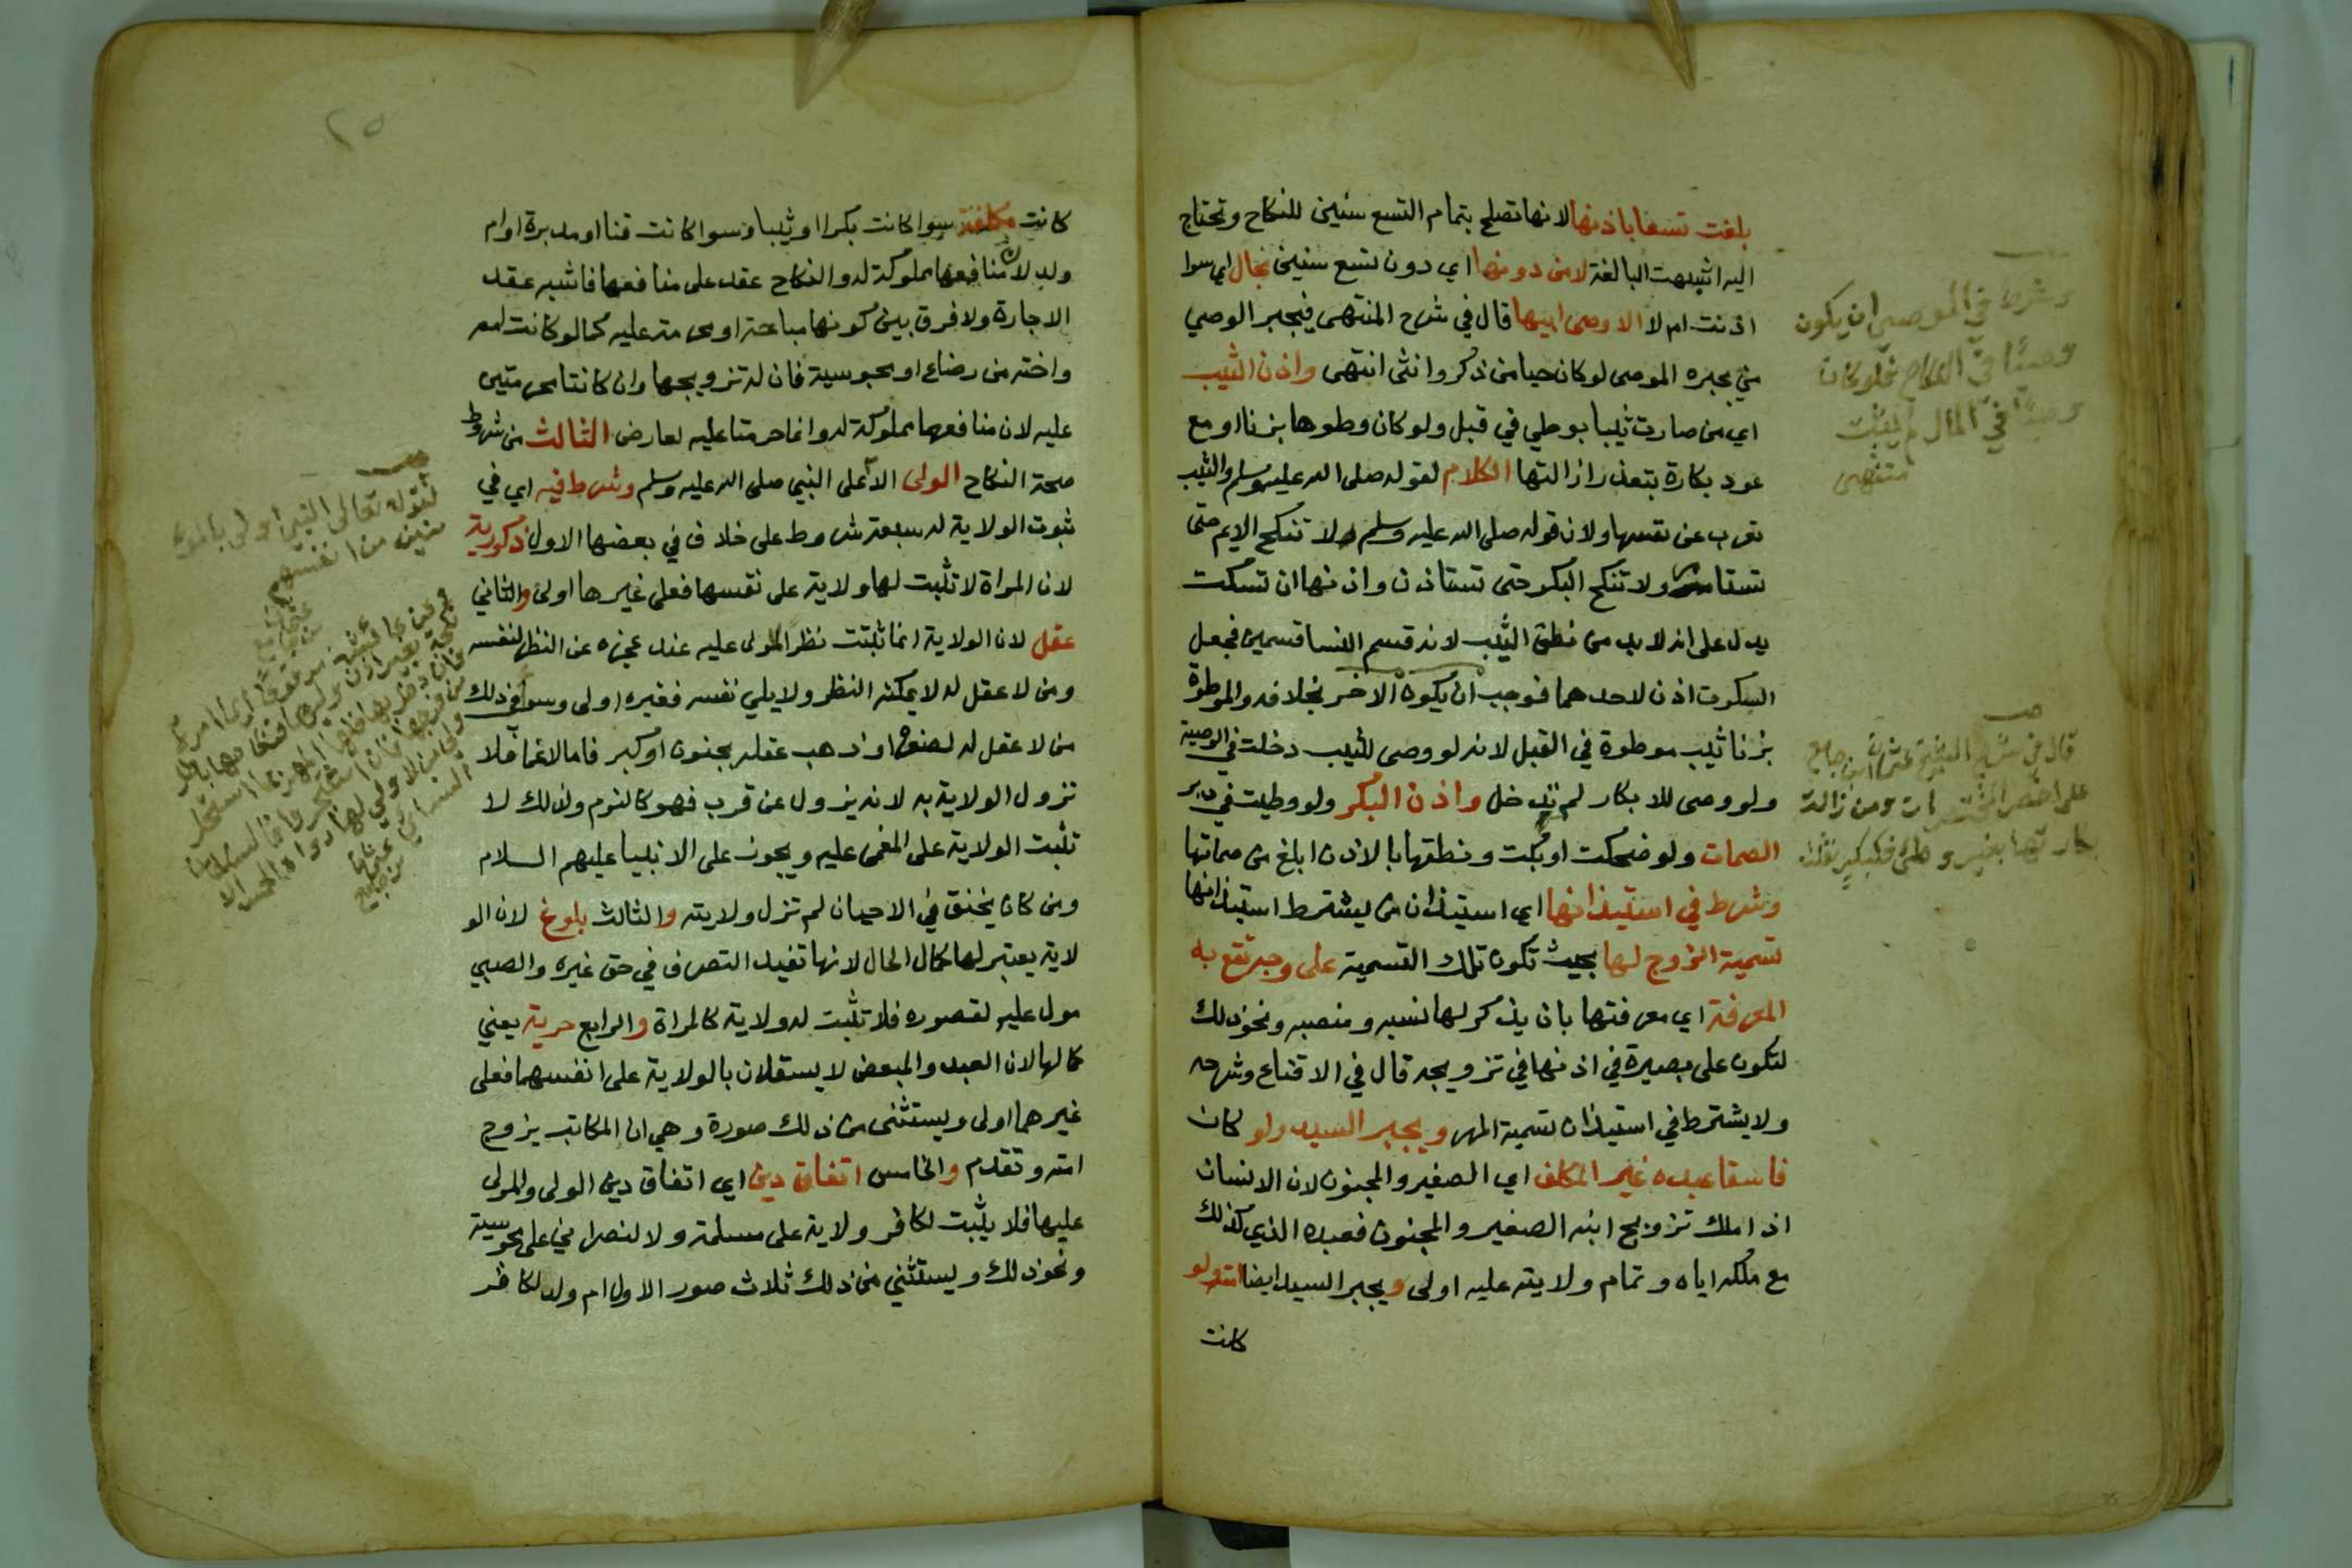 بلغت تسعا باذنها لانها تصلح بتمام التسع سنين للنكاح وتحتاج
اليه اشبهت البالغة لا من دونها اي دون تسع سنين بحال اي سوا
اذنت ام لا الا وصي ابيها قال في شرح المنتهى فيجبر الوصي
من يجبره الموصي لو كان حيا من ذكر وانثى انتهى واذن الثيب
اي من صارت ثيبا بوطي في قبل ولو كان وطوها بزنا او مع
عود بكارة بتعذر ازالتها الكلام لقوله صلى الله عليه وسلم والثيب
تعرب عن نفسها ولان قوله صلى الله عليه وسلم لا تنكح الايم حتى
تستامر ولا تنكح البكر حتى تستاذن واذنها ان تسكت
يدل على انه لا بد من نطق الثيب لانه قسم النسا قسمين فجعل
السكوت اذن لاحدهما فوجب ان يكون الاخر بخلافه والموطوة
بزنا ثيب موطوة في القبل لانه لو وصى للثيب دخلت في الوصية
ولو وصى للابكار لم تدخل واذن البكر ولو وطيت في دبر
الصمات ولو ضحكت او بكت ونطقها بالاذن ابلغ من صماتها
وشرط في استيذانها اي استيذان من يشترط استيذانها
تسمية الزوج لها بحيث تكون تلك التسمية على وجه تقع به
المعرفة اي معرفتها بان يذكر لها نسبه ومنصبه ونحو ذلك
لتكون على بصيرة في اذنها في تزويجه قال في الاقناع وشرحه
ولا يشترط في استيذان تسمية المهر ويجبر السيد ولو كان
فاسقا عبده غير المكلف اي الصغير والمجنون لان الانسان
اذا ملك تزويج ابنه الصغير والمجنون فعبده الذي كذلك
مع ملكه اياه وتمام ولايته عليه اولى ويجبر السيد ايضا امته ولو
كانت
وشرط في الموصي ان يكون
وصيا في النكاح فلو كان
وصيا في المال لم يثبت
انتهى
قال في شرح الشيخ عثمان ابن جامع
على اخصر المختصرات ومن زالت
بكارتها بغير وطئ فكبكر
٢٥
كانت مكلفة سوا كانت بكرا او ثيبا وسوا كانت قنا او مدبرة او ام
ولد لان منافعها مملوكة له والنكاح عقد على منافعها فاشبه عقد
الاجارة ولا فرق بين كونها مباحة او محرمة عليه كما لو كانت امه
واخته من رضاع او مجوسية فان له تزويجها وان كانتا محرمتين
عليه لان منافعهما مملوكة له وانما حرمتا عليه لعارض الثالث من شروط
صحة النكاح الولي الا على النبي صلى الله عليه وسلم وشرط فيه اي في
ثبوت الولاية له سبعة شروط على خلاف في بعضها الاول ذكورية
لان المراة لا تثبت لها ولاية على نفسها فعلى غيرها اولى والثاني
عقل لان الولاية انما ثبتت نظرا للمولى عليه عند عجزه عن النظر لنفسه
ومن لا عقل له لا يمكنه النظر ولا يلي نفسه فغيره اولى وسوا في ذلك
من لا عقل له لصغره او ذهب عقله بجنون او كبر فاما الاغما فلا
تزول الولاية به لانه يزول عن قرب فهو كالنوم ولذلك لا
تثبت الولاية على المغمى عليه ويجوز على الانبيا عليهم السلام
ومن كان يخنق في الاحيان لم تزل ولايته والثالث بلوغ لان الو
لاية يعتبر لها كمال الحال لانها تفيد التصرف في حق غيره والصبي
مولى عليه لقصوره فلا تثبت له ولاية كالمراة والرابع حرية يعني
كمالها لان العبد والمبعض لا يستقلان بالولاية على انفسهما فعلى
غيرهما اولى ويستثنى من ذلك صورة وهي ان المكاتب يزوج
امته وتقدم والخامس اتفاق دين اي اتفاق دين الولي والمولى
عليها فلا يثبت لكافر ولاية على مسلمة ولا لنصراني على مجوسية
ونحو ذلك ويستثني من ذلك ثلاث صور الاولى ام ولد لكافر
لقوله تعالى النبي اولى بالمؤ
منين من انفسهم
وعن عائشة مرفوعا ايما امرأة
نكحت بغير اذن وليها فنكاحها باطل
فان دخل بها فلها المهر بما استحل
من فرجها فان اشتجروا فالسلطان
ولي من لا ولي لها رواه الخمسة الا
النسائي